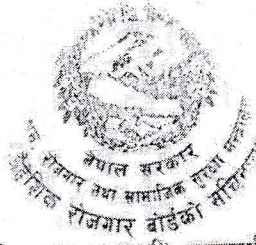 नेपाल सरकार
रोजगार तथा सामाजिक सुरक्षा
वैदेशिक रोजगार बोर्डको